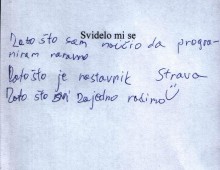 Svidelo mi se
Zato što sam naučio da progra-
miram naravno
Zato što je nastavnik Strava
Zato što smo zajedno radimo